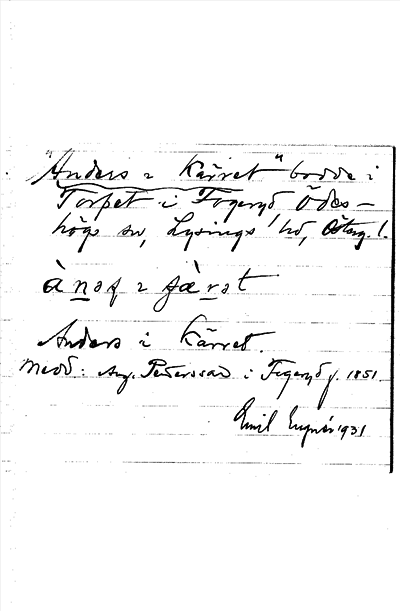 "Anders i Kärret" bodde i
Torpet i Fogeryd, Ödes-
högs sn, Lysings hd, Österg. l.
Anders i Kärret.
Medd: Aug. Pettersson i Fogeryd f. 1851
Emil 1931